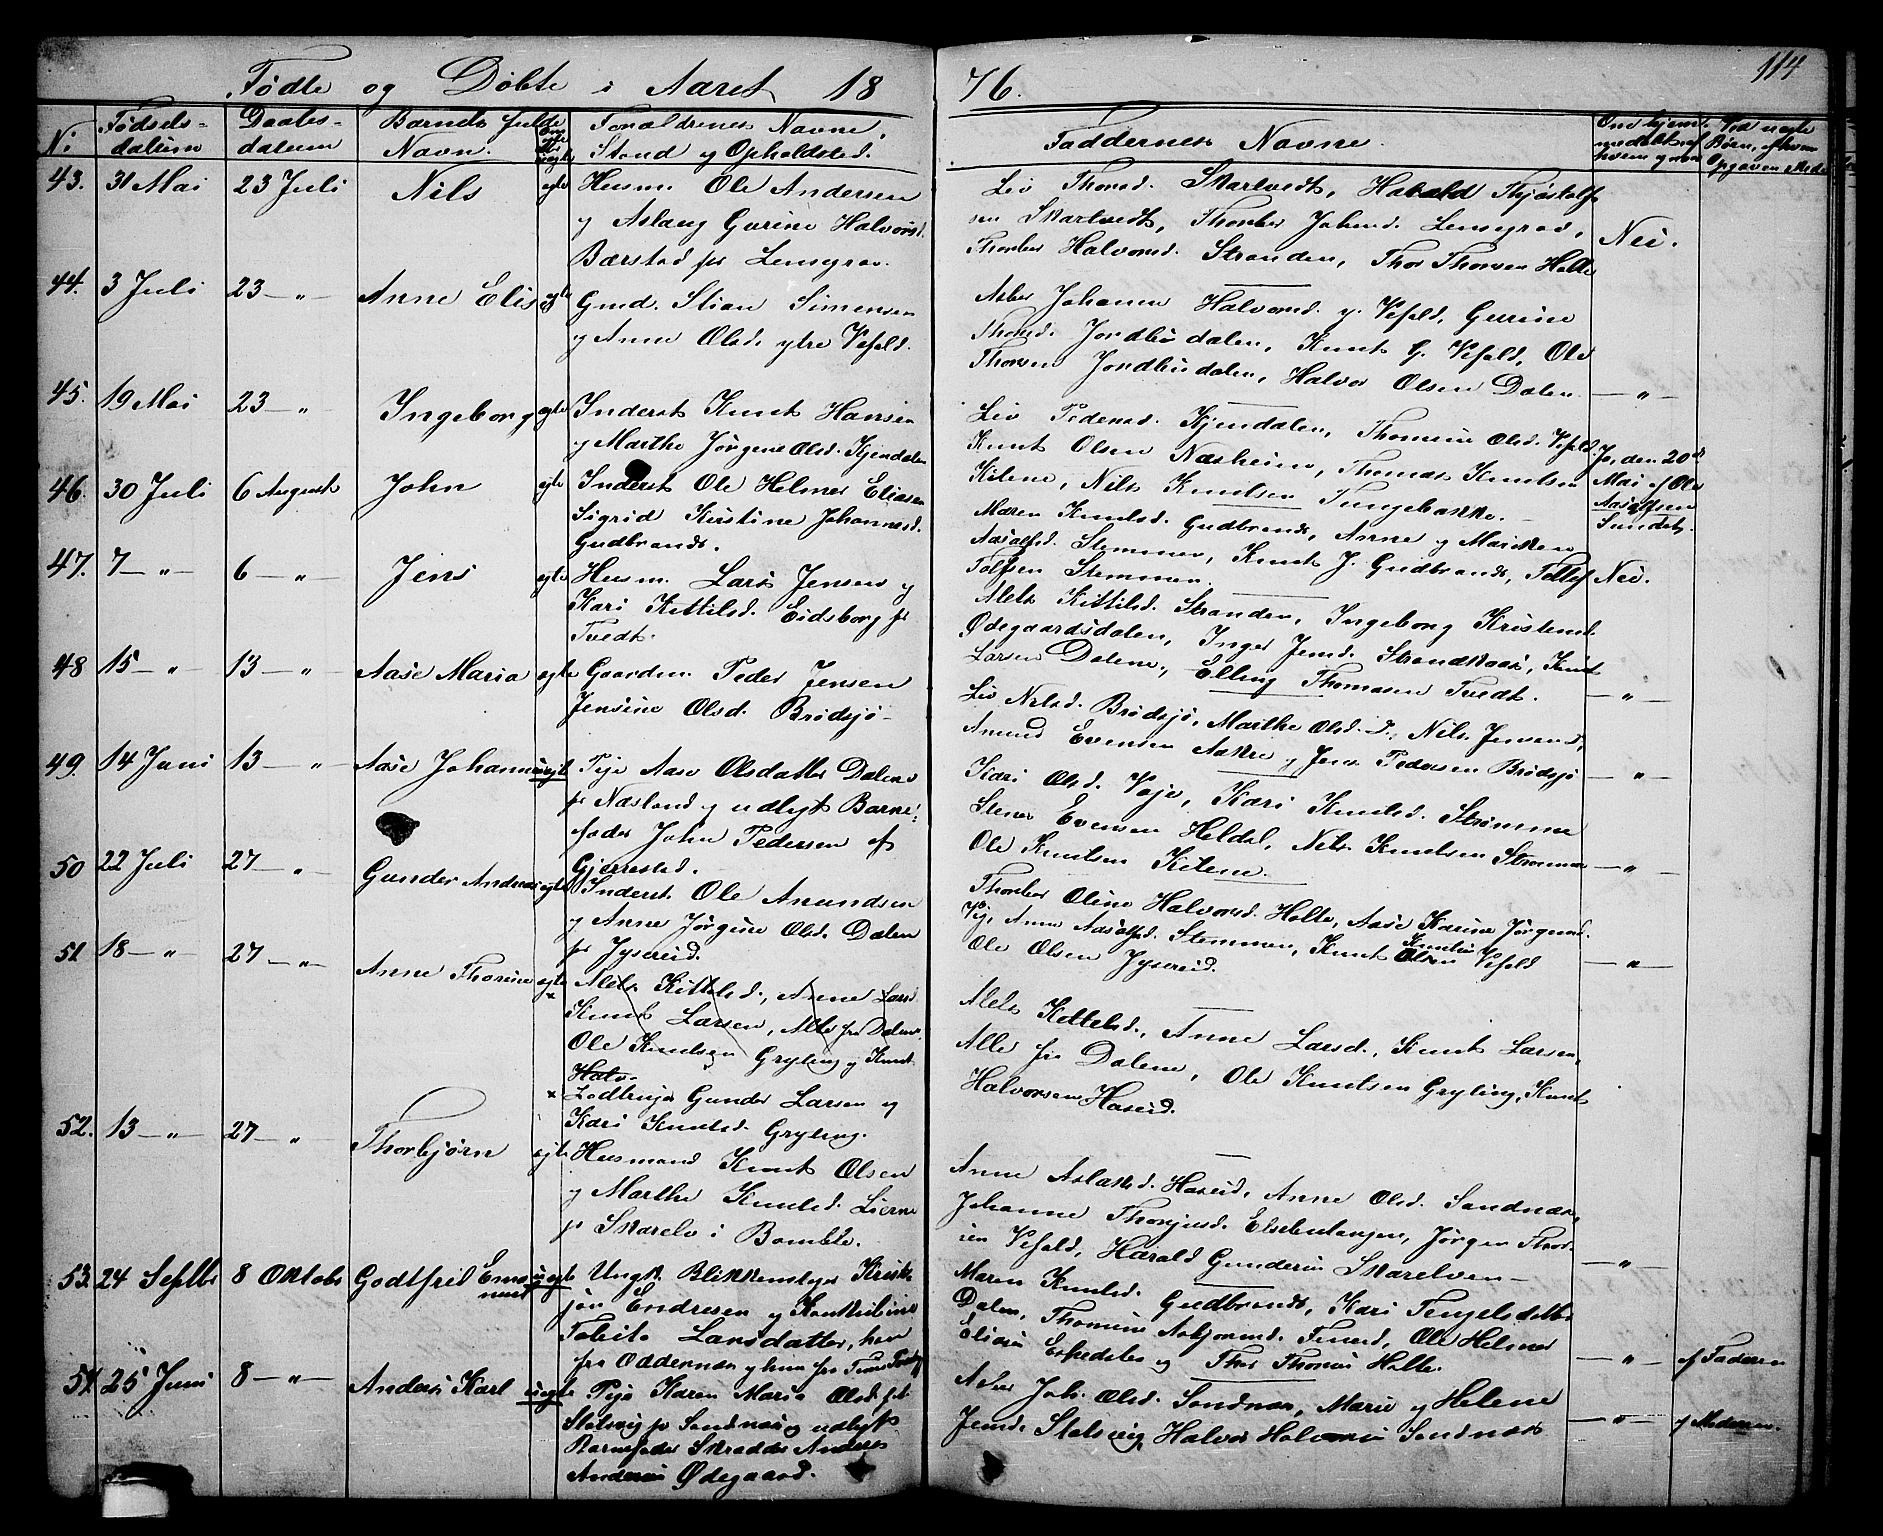 114
Fødte og Døbte i Aaret 1876.
No Fødsels- datum Daabs- datum Barnets fulde Navn. Forældrenes Navne, Stand og Opholdsted. Faddernes Navne.
43. 31 Mai 23 Juli Nils ægte Husm. Ole Andersen
og Aslaug Gurine Halvorsd.
Bærstad fr Lensgrav.
Liv Thorsd. Skartvedt, Harald Thjøstolf
sen Skartvedt, Thorbør Johnsd. Lensgrav,
Thorbør Halvorsd. Stranden, Thor Thorsen Holte
Nei.
44. 3 Juli 23 — „ Anne Elis ægte Gmd. Stian Simensen
og Anne Olsd. ytre Vefald.
Asber Johanne Halvorsd. y. Vefald, Gurine
Thorsd. Jordbudalen, Knut G. Vefald, Ole
Thorsen Jordbudalen, Halvor Olsen Dalen.
— „ —
45. 19 Mai 23 — „ Ingeborg ægte Inderst Knut Hansen
og Marthe Jørgene Olsd. Kjendalen
Liv Pedersd. Kjendalen, Thomine Olsd. Vefald,
Knut Olsen Næsheim, Thomas Knutsen
Kilene, Nils Knutsen Tungebakke.
Ja, den 20de
Mai af Ole
Aasolfsen
Sundet.
46. 30 Juli 6 August John ægte Inderst Ole Helmer Eliasen
Sigrid Kirstine Johannesd.
Gudbrands.
Maren Knutsd. Gudbrands, Anne og Mariken
Aasolfsd. Stemmen, Knut J. Gudbrands, Tellef
Tolfsen Stemmen.
Nei.
47. 7 — „ — 6 — „ — Jens ægte Husm. Lars Jensen og
Kari Kittilsd. Eidsborg fr
Tvedt.
Alets Kittilsd. Stranden, Ingeborg Kristensd.
Ødegaardsdalen, Inger Jensd. Strandkaas, Knut
Larsen Dalene, Elling Thomasen Tvedt.
— „ —
48 15 — „ 13 — „ Aase Maria ægte Gaardm. Peder Jensen
Jensine Olsd. Brødsjø
Liv Nilsd. Brødsjø, Marthe Olsd. D., Nils Jensen,
Amund Evensen Aakre og Jens Pedersen Brødsjø
— „ —
49. 14 Juni 13 — „ Aase Johanne uægte Pige Aase Olsdatter Dalene
fr Næsland og udlagt Barne-
fader John Pedersen af
Gjerrestad.
Kari Olsd. Vaje, Kari Knutsd. Strømme
Stener Evensen Heldal, Nils Knutsen Strømme
Ole Knutsen Kilene.
— „ —
50 22 Juli 27 — „ Gunder Andreas ægte Inderst Ole Amundsen
og Anne Jørgine Olsd. Dalen
fr Jysereid.
Thorbør Oline Halvorsd. Holte, Aase Karine Jørgensd.
Vej, Anne Aasolfsd. Stemmen, Knut Olsen Knutsen Vefald
Ole Olsen Jysereid.
— „ —
51 18 — „ 27 — „ — Anne Thorine ægte Alets Kittilsd., Anne Larsd.
× Knut Larsen, Alle fra Dalene,
Ole Knutsen Gryting og Knut
Halv-
× Lodtrujer Gunder Larsen og
Kari Knutsd. Gryting.
Alets Kittelsd., Anne Larsd., Knut Larsen,
Alle fra Dalene, Ole Knutsen Gryting, Knut
Halvorsen Haseid.
52. 13 — „ 27 — „ Thorbjørn ægte Husmand Knut Olsen
og Marthe Knutsd. Lierne
fr Skarelv i Bamble.
Anne Aslaksd. Haseid, Anne Olsd. Sandnæs,
Johanne Thorjusd. Elsebutangen, Jørgen Thor-
sen Vefald, Harald Gundersen Skarelven
— „ —
53. 24 Septbr 8 Oktobr Godtfrid Emanuel uægte Ungk. Blikkenslager Kristi
jan Endresen og
Tobite Larsdatter, han
fra Oddernæs og hun fra
Maren Knutsd. Gudbrands, Kari Tengelsdatter
Dalen, Thomine Asbjørnsd. Finsrud, Ole Helmer
Eliasen og Thor Thorsen Holte.
— „ — af Faderen
54. 25 Juni 8 — „ — Anders Karl uægte Pige Karen Maria Olsd. fr
Stølsvig fr Sandnæs og udlagt
Barnefader Skrædder Anders
Andersen Ødegaard.
Asber Joh. Olsd. Sandnæs, Marie og Helene
Jensd. Stølsvig, Halvor Halvorsen Sandnæs
— „ — af Moderen.